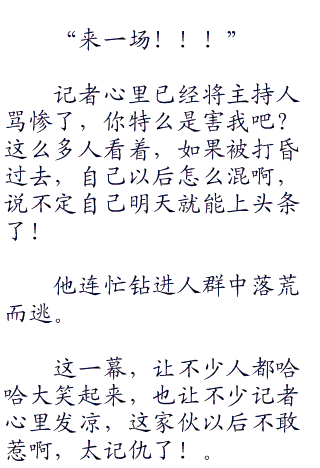 “来一场！！！”
记者心里已经将主持人
骂惨了，你特么是害我吧？
这么多人看着，如果被打昏
过去，自己以后怎么混啊，
说不定自己明天就能上头条
了！
他连忙钻进人群中落荒
而逃。
这一幕，让不少人都哈
哈大笑起来，也让不少记者
心里发凉，这家伙以后不敢
惹啊，太记仇了！。